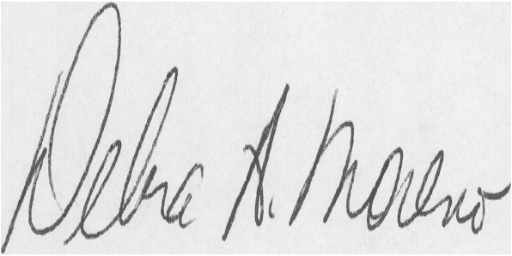 Debra A. Moreno